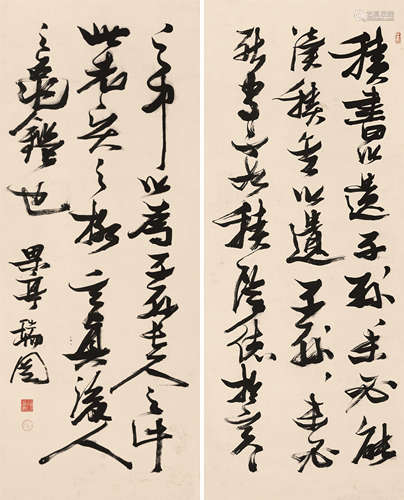 積書以遺子孫未必能
讀積金以遺子孫未必
能守不如積陰德於冥冥
之中以為子孫長久之計
此先賢之格言真後人
之龜鑑也
果亭瑞圖